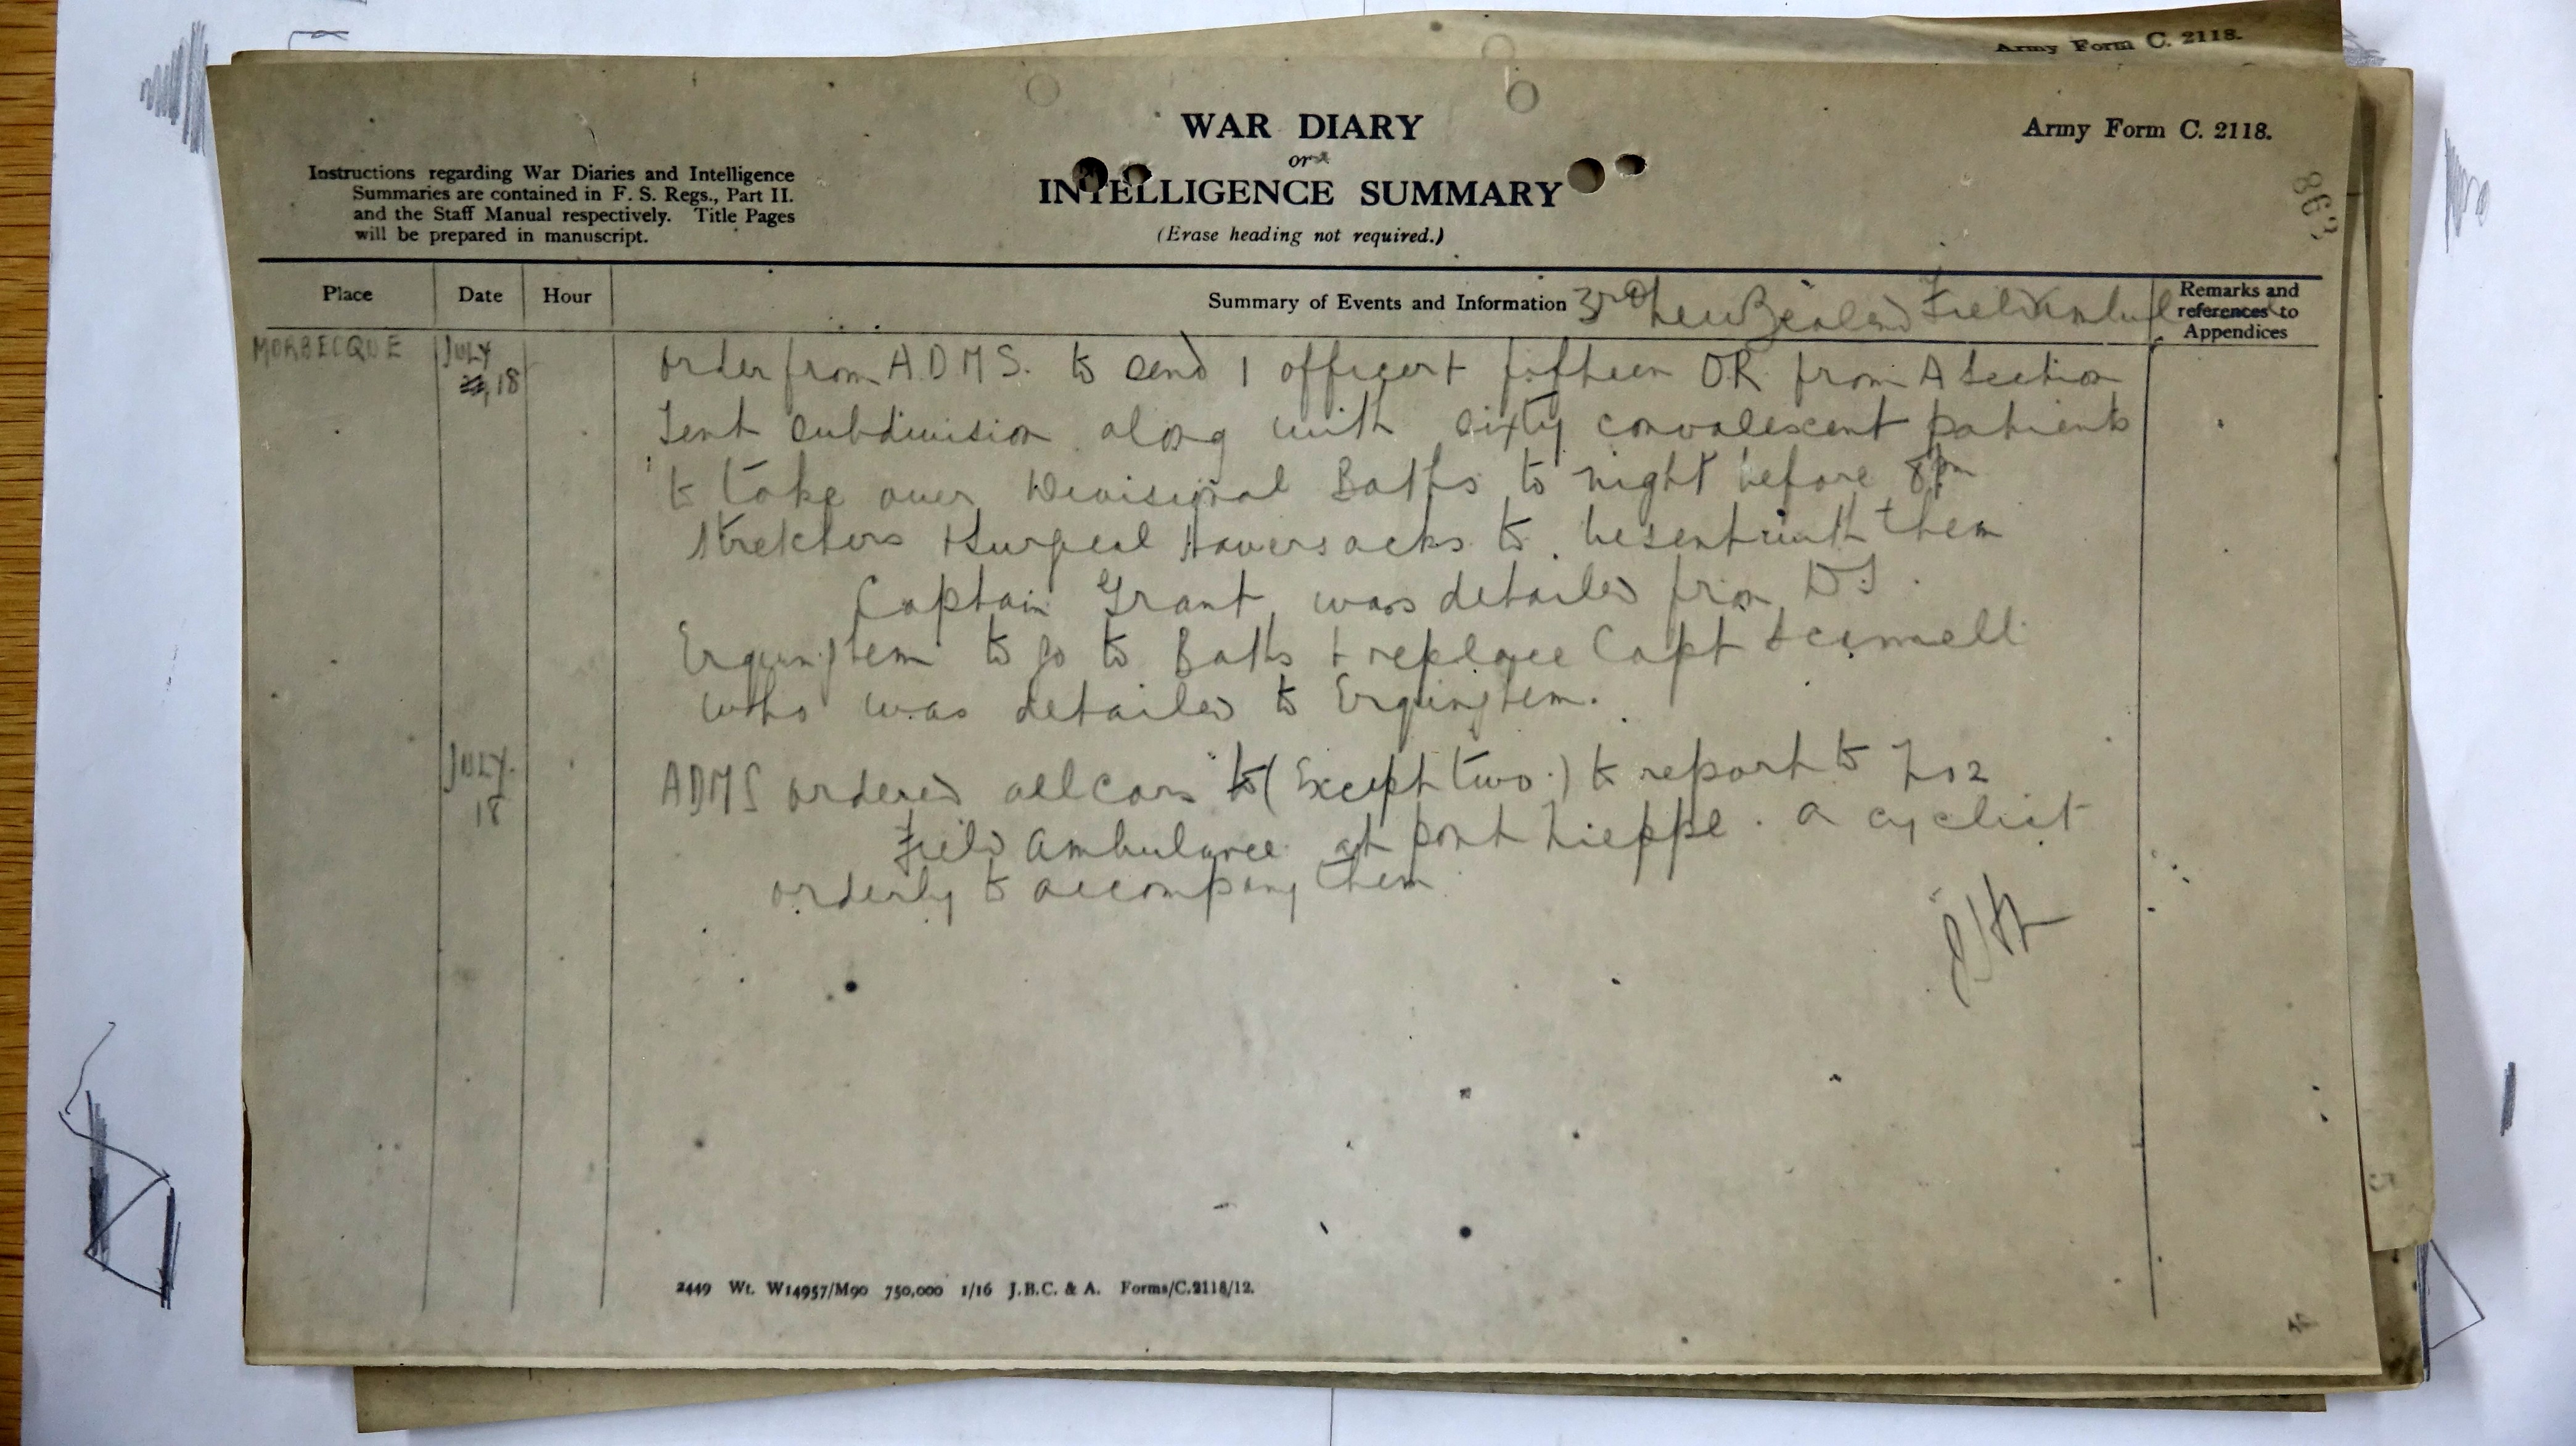 Army Form C. 2118.
WAR DIARY
or
INTELLIGENCE SUMMARY
(Erase heading not required.)
Army Form C. 2118.
Instructions regarding War Diaries and Intelligence
Summaries are contained in F. S. Regs., Part II.
and the Staff Manual respectively. Title Pages
will be prepared in manuscript.
863
Place
Date
Hour
Summary of Events and Information
3rd New Zealand Field Ambulance
Remarks and
references to
Appendices
MORBECQUE
JULY
18
order from A.D.M.S. to send 1 officer + fifteen OR from A Section
Tent subdivision along with sixty convalescent patients
to take over Divisional Baths to night before 8pm
stretchers + Surgical Haversacks to be sent with them
Captain Grant was detailed from
Erquinghem to go to Baths + replace Capt
who was detailed to Erquinghem.
JULY.
18
ADMS ordered all cars to (Except two.) to report to No 2
Field Ambulance at pont Nieppe. a cyclist
orderly to accompany them
2449 Wt. W14957/M90 750,000 1/16 J.B.C. & A. Forms/C.2118/12.